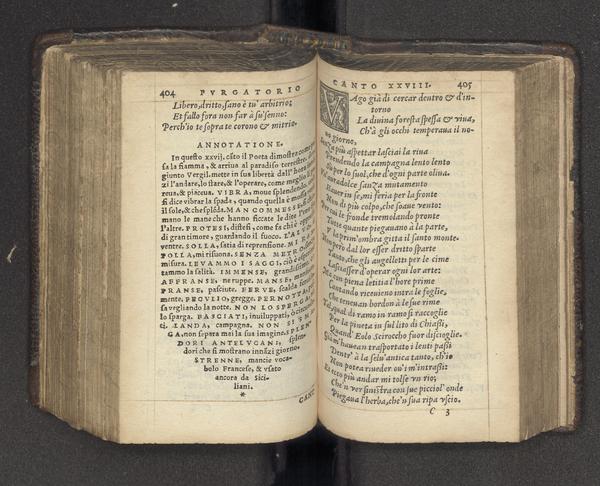 404 PVRGATORIO
Libero, dritto, sano è tu' arbitrio;
Et fallo fora non far à su' senno:
Perch'io te sopra te corono & mitrio.
ANNOTATIONE.
In questo xxvij. cãto il Poeta dimostra come
sa la fiamma, & arriua al paradiso terrestre.
giunto Vergil. mette in sua libertà dall'hora
zi l'andare, lo stare, & l'operare, come meglio
reua, & piaceua. VIBRA, moue splendendo,
si dice vibrar la spada, quando quella è mossa
il sole, & che splẽda. MAN COMMESSE,
mano le mane che hanno ficcate le dite l'vne
l'altre. PROTESI, distesi, come fa chi è
di gran timore, guardando il fuoco. L'ALVO,
ventre. SOLLA, satia di reprensione. MI RI
POLLA, mi risuona. SENZA METRO,
misura. LEVAMMO I SAGGI, ciò è
tammo la salita. IMMENSE, grandissime.
AFFRANSE, ne ruppe. MANSE, mansuete.
PRANSE, pasciute. FERVE, scalda
mente. PECVLIO, gregge. PERNOTTA,
sa vegliando la notte. NON LO SPERGA,
lo sparga. FASCIATI, inuiluppati,
ti. LANDA, campagna. NON SI SMA
GA, non separa mai la sua imagine. SPLEN
DORI ANTELVCANI, splen-
dori che si mostrano innãzi giorno.
STRENNE, mancie voca-
bolo Francese, & vsato
ancora da Sici-
liani.
*
CANT
CANTO XXVIII. 405
VAgo già di cercar dentro & d'in-
torno
La diuina foresta spessa & viua,
Ch'à gli occhi temperaua il no-
uo giorno,
Senza più aspettar lasciai la riua
Prendendo la campagna lento lento
Sù per lo suol, che d'ogni parte oliua.
Vn'aura dolce sanza mutamento
Hauer in se, mi feria per la fronte
Non di più colpo, che soaue vento:
Per cui le fronde tremolando pronte
Tutte quante piegauano à la parte,
V la prim'ombra gitta il santo monte.
Non però dal lor esser dritto sparte
Tanto, che gli augelletti per le cime
Lasciasser d'operar ogni lor arte:
Ma con piena letitia l'hore prime
Cantando riceuieno intra le foglie,
Che teneuan bordon à le sue rime
Tal, qual di ramo in ramo si raccoglie
Per la pineta in sul lito di Chiassi,
Quand' Eolo Sciroccho fuor discioglie.
Già m'haueuan trasportato i lenti passi
Dentr' à la selu'antica tanto, ch'io
Non potea riueder ou'i m'intrassi:
Et ecco più andar mi tolse vn rio;
Che'n ver sinistra con sue picciol' onde
Piegaua l'herba, che'n sua ripa vscio.
C 3